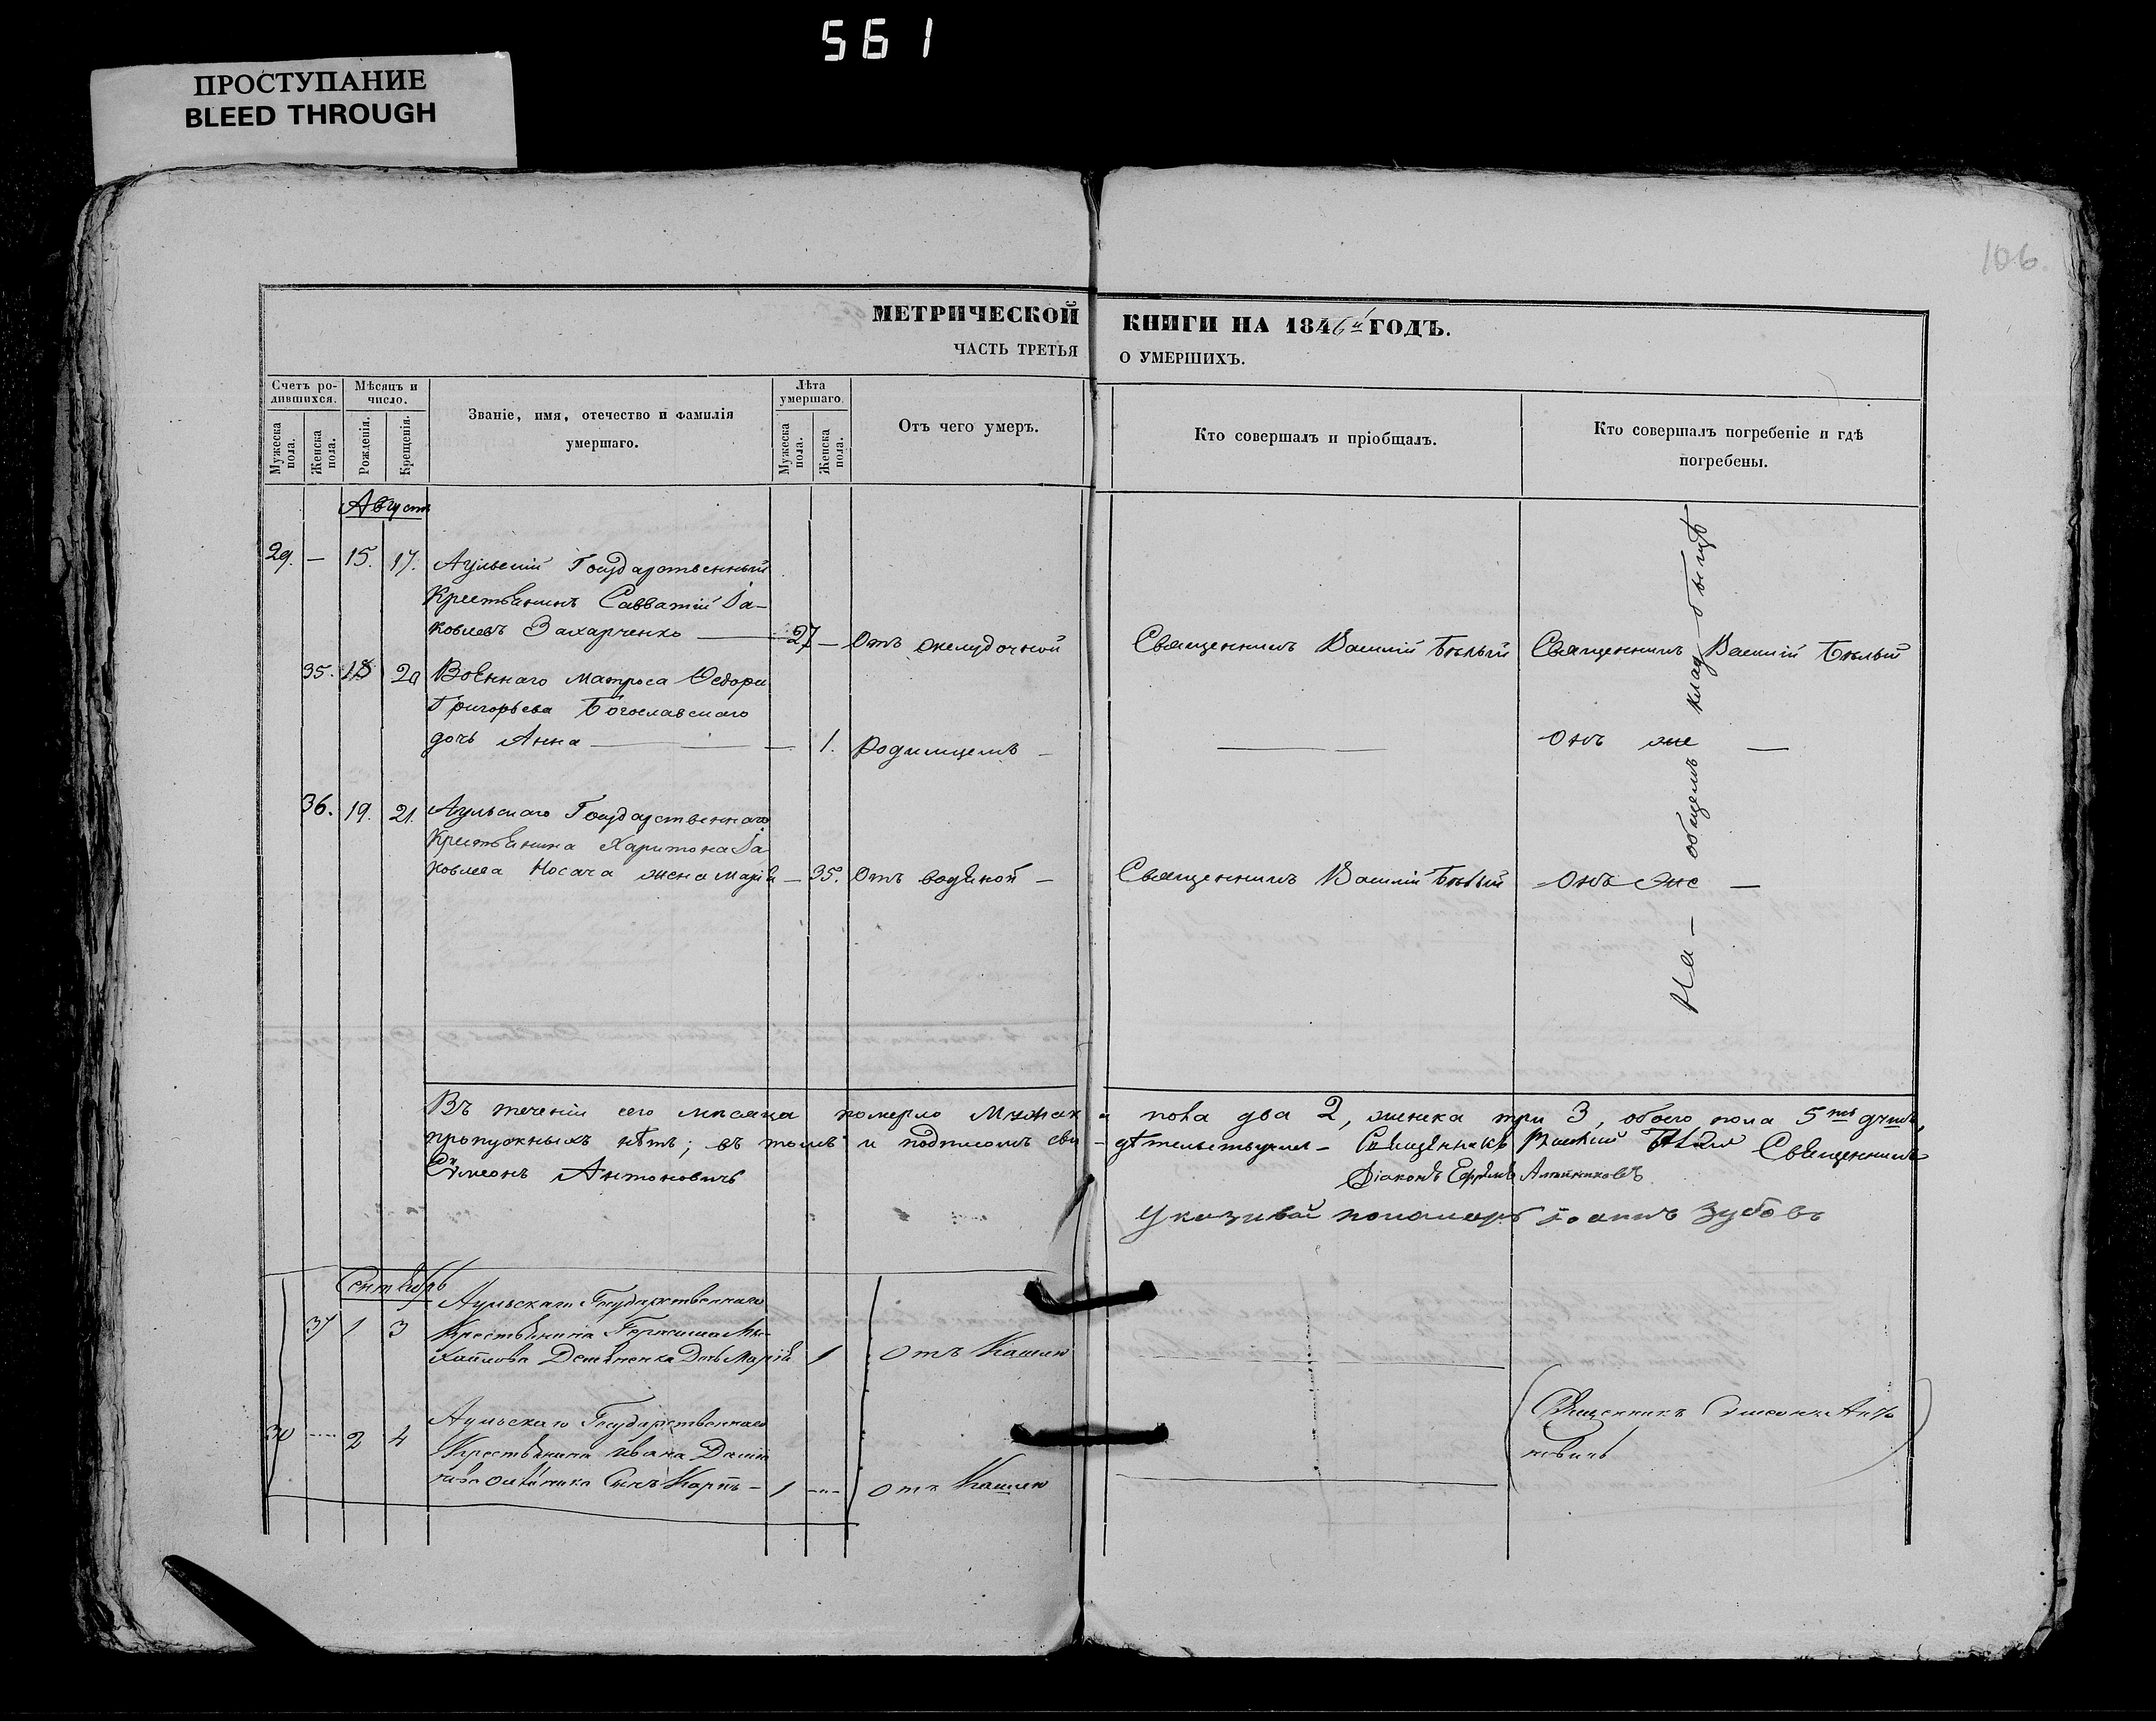 561
ПРОСТУПАНИЕ
BLEED THROUGH
106.
МЕТРИЧЕСКОЙ КНИГИ НА 1846й ГОДЪ.
ЧАСТЬ ТРЕТЬЯ О УМЕРШИХЪ.
Счетъ ро-
дившихся.
Мѣсяцъ и
число.
Званіе, имя, отечество и фамилія
умершаго.
Лѣта
умершаго.
Отъ чего умеръ.
Кто совершалъ и пріобщалъ.
Кто совершалъ погребеніе и гдѣ
погребены.
Мужеска
пола.
Женска
пола.
Рожденія.
Крещенія.
Мужеска
пола.
Женска
пола.
Августъ
29. — 15. 17. Аульскій Государственный
Крестьянинъ Савватій Іа-
ковлевъ Захарченко — 27 — Отъ желудочной Священникъ Василій Бѣлый Священникъ Василій Бѣлый
35. 18 20 Военнаго матроса Ѳедора
Григорьева Богославскаго
дочь Анна — 1. Родимцемъ — — Онъ же —
36. 19. 21. Аульскаго Государственнаго
Крестьянина Харитона Іа-
ковлева Носача жена Марія — 35. Отъ водяной — Священникъ Василій Бѣлый Онъ же —
На — общемъ кладбыщѣ
Въ теченіи сего мѣсяца померло Мужска пола два 2, женска три 3, обоего пола 5ть душъ,
пропускныхъ нѣтъ; въ томъ и подписомъ сви-дѣтельствуемъ — Священникъ Василій Бѣлый Священникъ
Сѵмеонъ Антоновичъ
Діаконъ Ефремъ
Указный пономарь Іоаннъ Зубовъ
Сентябрь
37 1 3 Аульскаго Государственнаго
Крестьянина Герасима Ми-
хайлова дочь Марія 1 Отъ Кашлю
30 2 4 Аульскаго Государственнаго
Крестьянина Ивана
Сынъ Карпъ — 1 Отъ Кашлю
Священникъ Симеонъ Анто-
новичъ